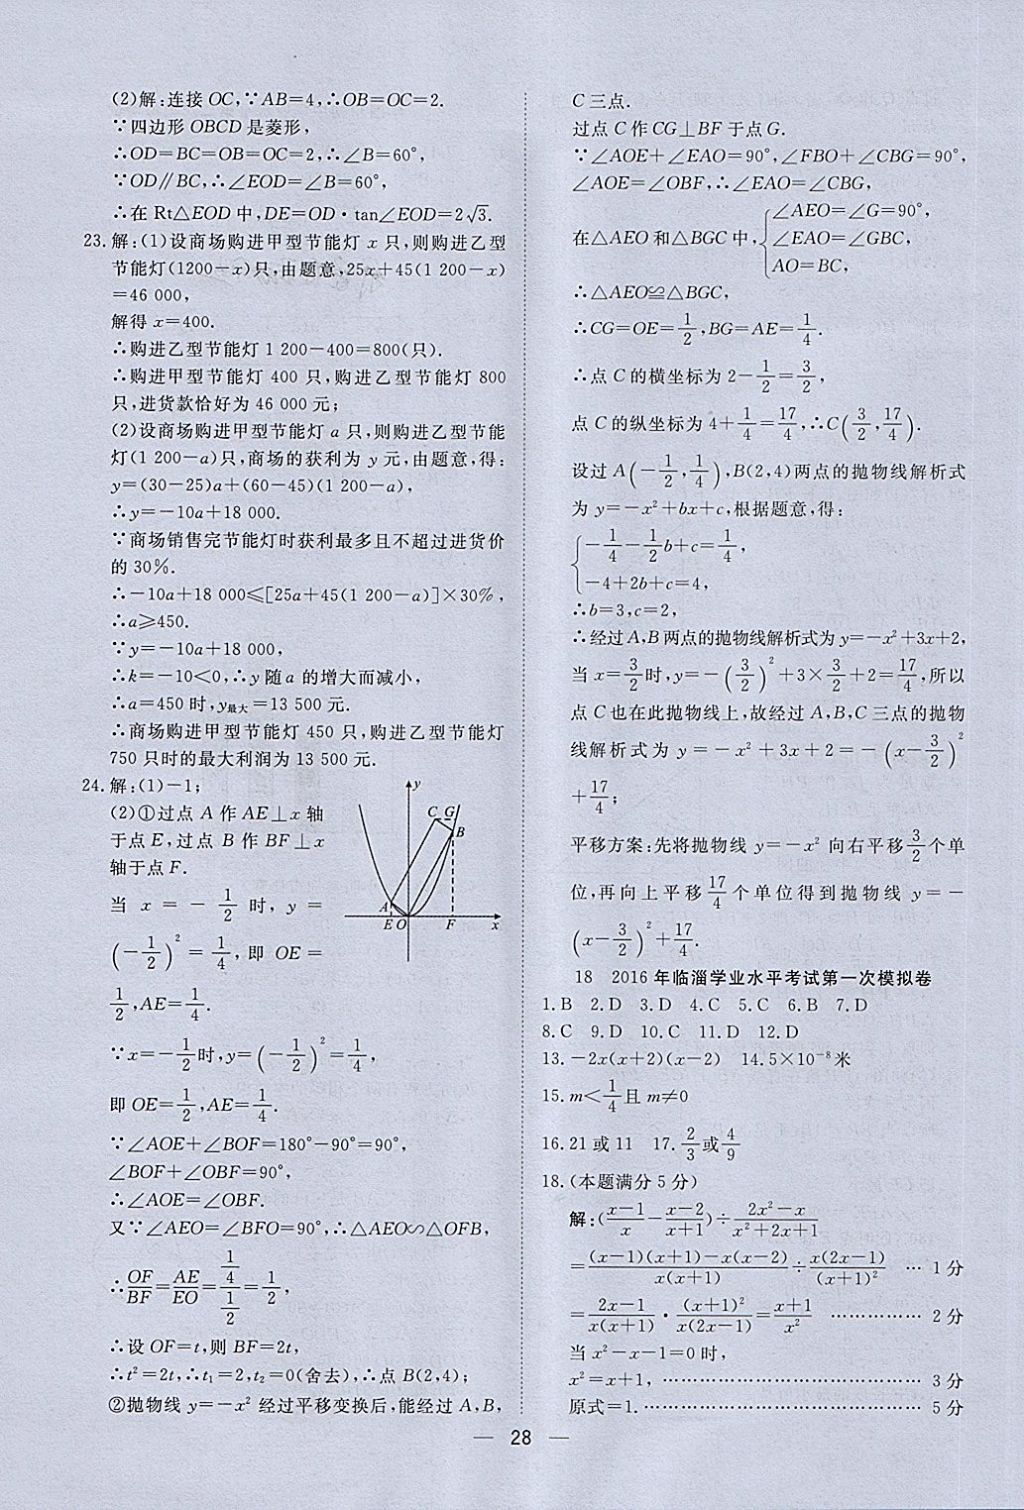 (2)解:连接 OC,∵AB=4,∴OB=OC=2.
∵四边形 OBCD 是菱形,
∴OD=BC=OB=OC=2,∴∠B=60°,
∵OD∥BC,∴∠EOD=∠B=60°,
∴在 Rt△EOD 中,DE=OD·tan∠EOD=2√3.
23.解:(1)设商场购进甲型节能灯 x 只,则购进乙型
节能灯(1200-x)只,由题意,25x+45(1 200-x)
=46 000,
解得 x=400.
∴购进乙型节能灯 1 200-400=800(只).
∴购进甲型节能灯 400 只,购进乙型节能灯 800
只,进货款恰好为 46 000 元;
(2)设商场购进甲型节能灯 a 只,则购进乙型节能
灯(1 200-a)只,商场的获利为 y 元,由题意,得:
y=(30-25)a+(60-45)(1 200-a),
∴y=-10a+18 000.
∵商场销售完节能灯时获利最多且不超过进货价
的 30%.
∴-10a+18 000≤[25a+45(1 200-a)]×30%,
∴a≥450.
∵y=-10a+18 000,
∴k=-10<0,∴y 随 a 的增大而减小,
∴a=450 时,y最大=13 500 元.
∴商场购进甲型节能灯 450 只,购进乙型节能灯
750 只时的最大利润为 13 500 元.
24.解:(1)-1;
(2)①过点 A 作 AE⊥x 轴
于点 E,过点 B 作 BF⊥x
轴于点 F.
当 x=-1/2 时,y=
(-1/2)²=1/4,即 OE=
1/2,AE=1/4.
y
C G
B
A
E O F x
∵x=-1/2时,y=(-1/2)²=1/4,
即 OE=1/2,AE=1/4.
∵∠AOE+∠BOF=180°-90°=90°,
∠BOF+∠OBF=90°,
∴∠AOE=∠OBF.
又∵∠AEO=∠BFO=90°,∴△AEO∽△OFB,
∴OF/BF=AE/EO=(1/4)/(1/2)=1/2,
∴设 OF=t,则 BF=2t,
∴t²=2t,∴t₁=2,t₂=0(舍去),∴点 B(2,4);
②抛物线 y=-x² 经过平移变换后,能经过 A,B,
C 三点.
过点 C 作 CG⊥BF 于点 G.
∵∠AOE+∠EAO=90°,∠FBO+∠CBG=90°,
∠AOE=∠OBF,∴∠EAO=∠CBG,
在△AEO 和△BGC 中,{∠AEO=∠G=90°,
∠EAO=∠GBC,
AO=BC,
∴△AEO≌△BGC,
∴CG=OE=1/2,BG=AE=1/4.
∴点 C 的横坐标为 2-1/2=3/2,
点 C 的纵坐标为 4+1/4=17/4,∴C(3/2,17/4).
设过 A(-1/2,1/4),B(2,4)两点的抛物线解析式
为 y=-x²+bx+c,根据题意,得:
{-1/4-1/2b+c=1/4,
-4+2b+c=4,
∴b=3,c=2,
∴经过 A,B 两点的抛物线解析式为 y=-x²+3x+2,
当 x=3/2时,y=-(3/2)²+3×3/2+2=17/4,所以
点 C 也在此抛物线上,故经过 A,B,C 三点的抛物
线解析式为 y=-x²+3x+2=-(x-3/2)²
+17/4;
平移方案:先将抛物线 y=-x² 向右平移3/2个单
位,再向上平移17/4个单位得到抛物线 y=-
(x-3/2)²+17/4.
18 2016 年临淄学业水平考试第一次模拟卷
1.B 2.D 3.D 4.C 5.C 6.B 7.D
8.C 9.D 10.C 11.D 12.D
13.-2x(x+2)(x-2) 14.5×10⁻⁸米
15.m<1/4且 m≠0
16.21 或 11 17.2/3或4/9
18.(本题满分 5 分)
解:((x-1)/x-(x-2)/(x+1))÷(2x²-x)/(x²+2x+1)
=((x-1)(x+1)-x(x-2))/(x(x+1))÷(x(2x-1))/((x+1)²) … 1 分
=(2x-1)/(x(x+1))·((x+1)²)/(x(2x-1))=(x+1)/x² …………… 2 分
当 x²-x-1=0 时,
x²=x+1, ……………………………… 3 分
原式=1. ……………………………… 5 分
— 28 —